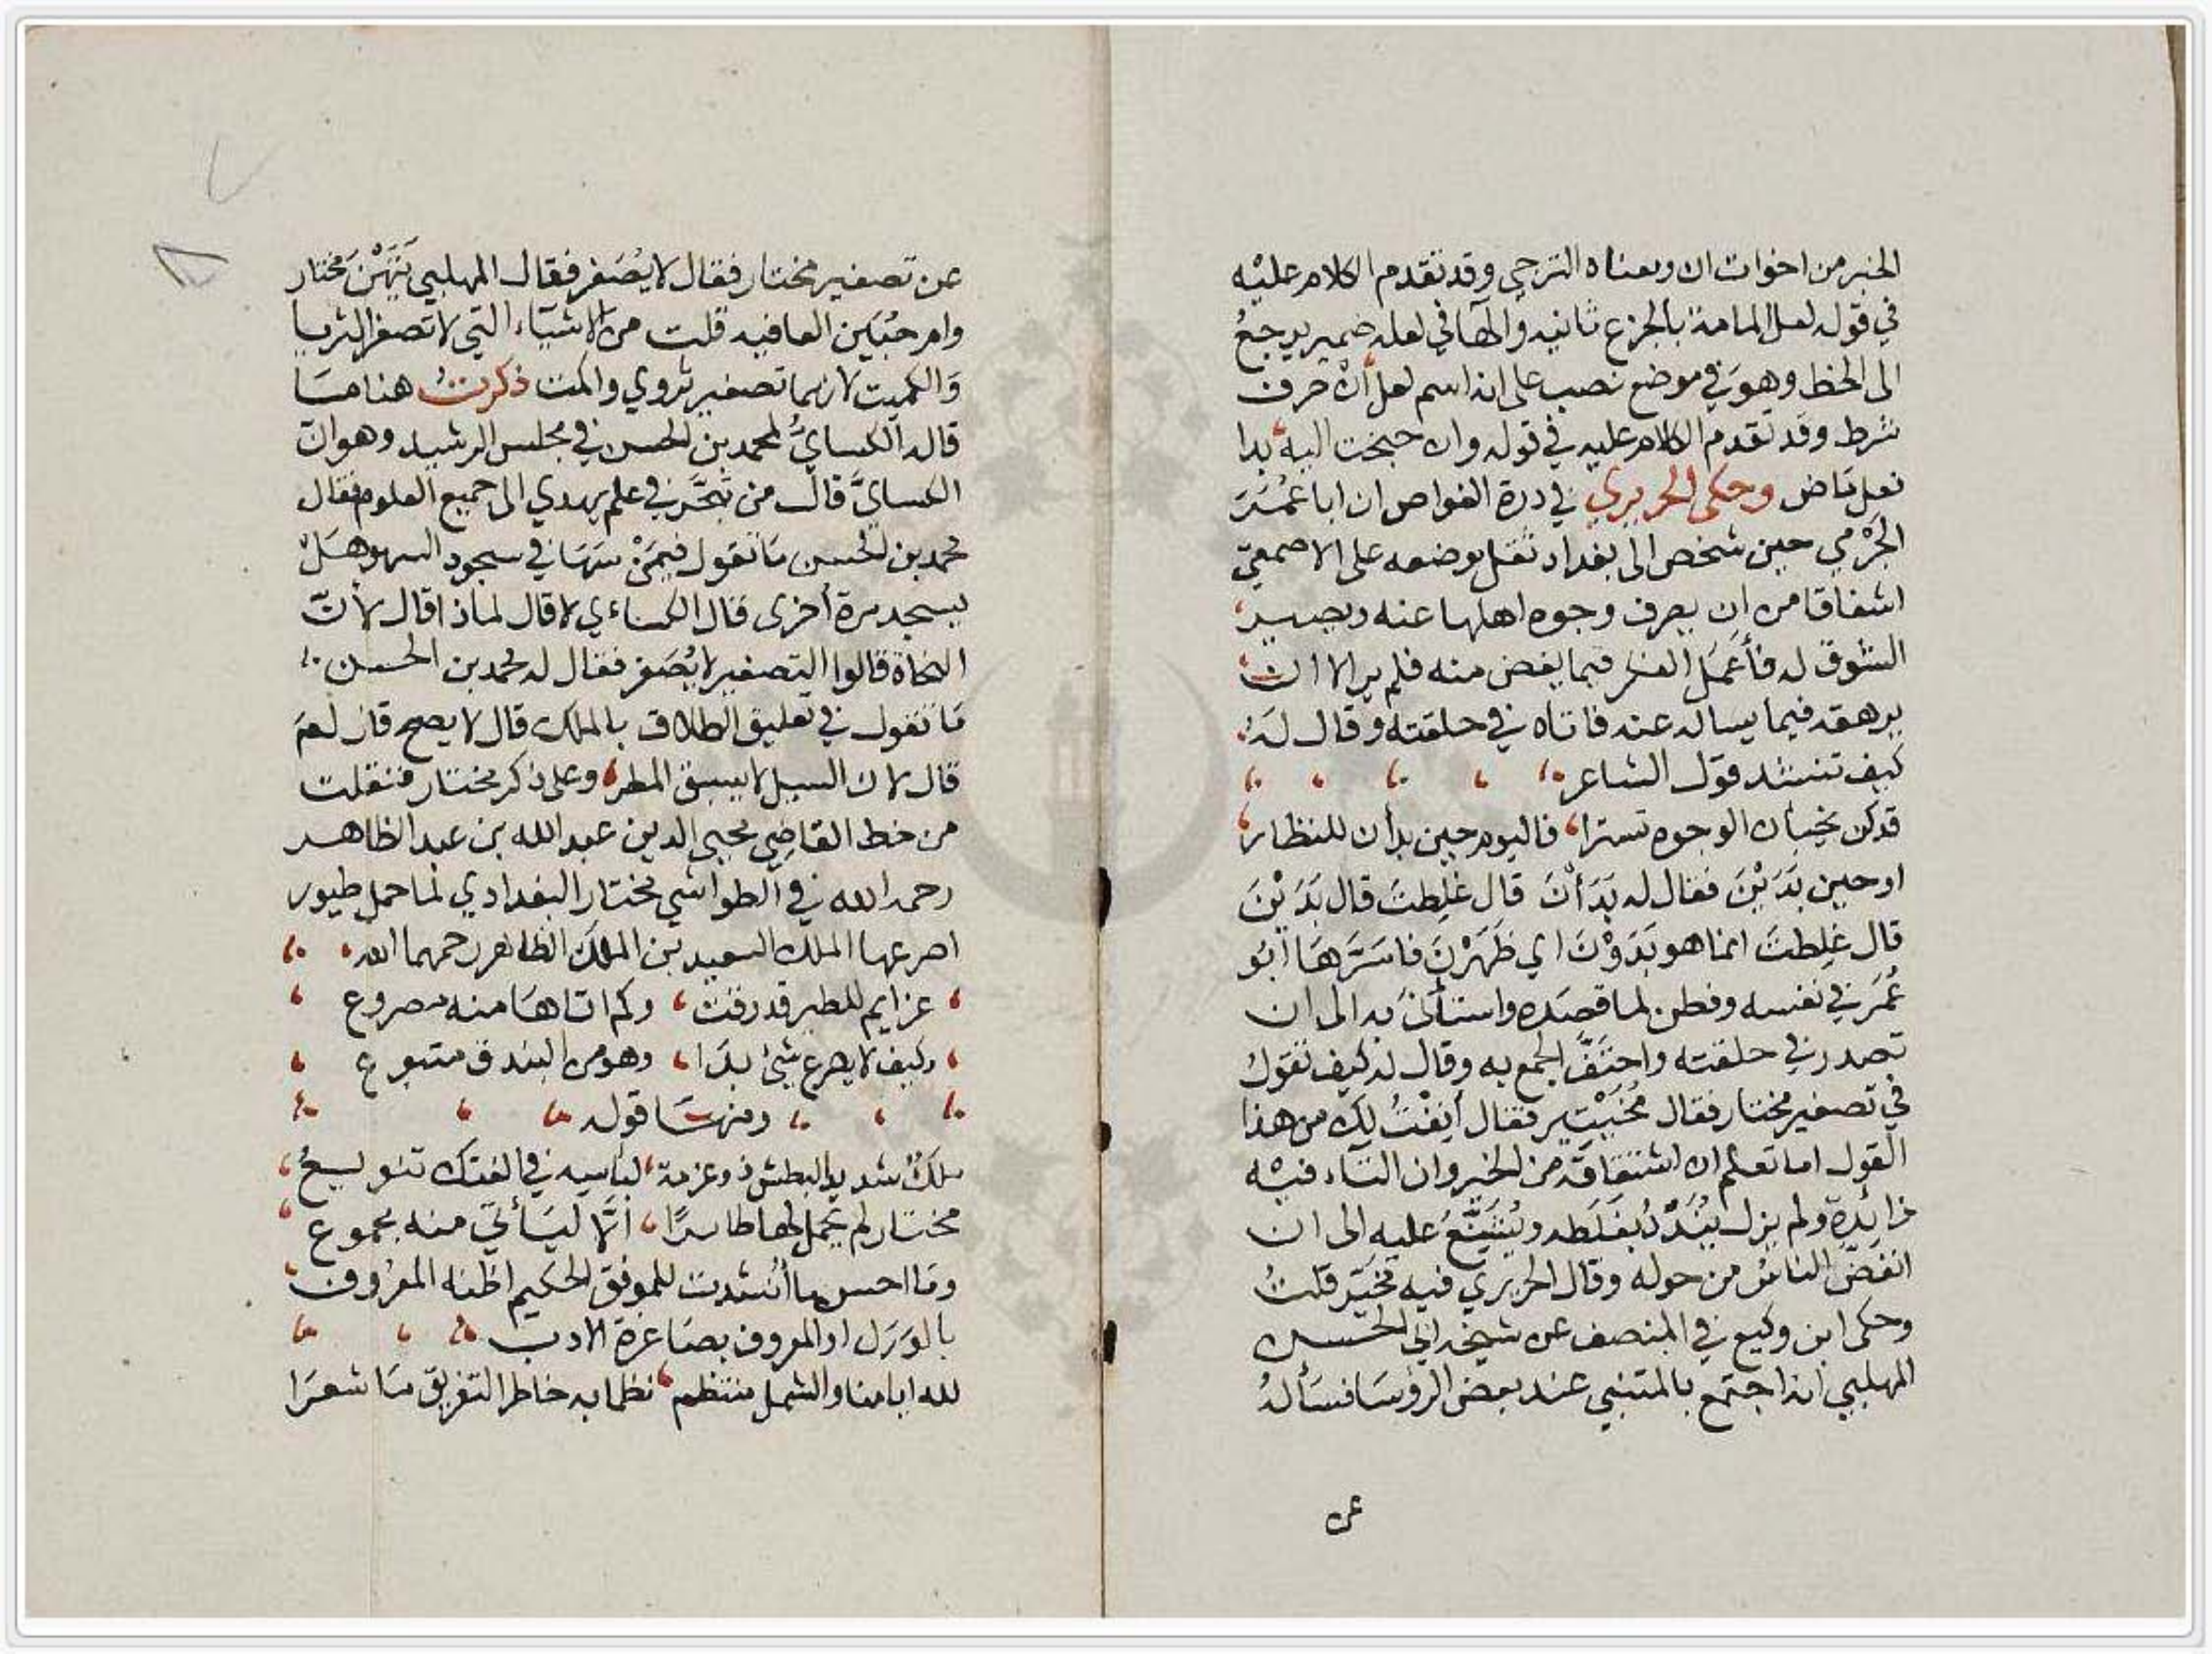 الخبر من اخوات ان ومعناه الترجي وقد تقدم الكلام عليه
في قوله لعل المامة بالجزع ثانيه والهآ في لعله ضمير يرجع
الى الحظ وهو في موضع نصب على انه اسم لعل ان حرف
شرط وقد تقدم الكلام عليه في قوله وان جنحت اليه بدا
فعل ماض وحكى الحريري في درة الغواص ان ابا عُمَرَ
الجَرْمي حين شخص الى بغداد ثقل موضعه على الاصمعيّ
اشفاقا من ان يصرف وجوه اهلها عنه ويصير
السوق له فأعمَل الفكر فيما يغض منه فلم ير الا ان
يرهقه فيما يساله عنه فاتاه في حلقته وقال له
كيف تنشد قول الشاعر
قد كن يخبأن الوجوه تسترا فاليوم حين بدأن للنظار
او حين بَدَيْنَ فقال له بَدَأْنَ قال غلِطتَ قال بَدَيْنَ
قال غلِطتَ انما هو بَدَوْنَ اي ظَهَرْنَ فاسَرَّهَا ابُو
عُمَرَ في نفسه وفطن لما قصَده واستأنَى به الى ان
تصدر في حلقته واحتَفَّ الجمع به وقال له كيف تقول
في تصغير مختار فقال مُخَيْتير فقال أنِفْتُ لك من هذا
القول اما تعلم ان اشتقاقَه من الخير وان التآء فيه
زائدة ولم يزل يُنَدّدُ بغَلَطه ويُشَنِّعُ عليه الى ان
انفَضَّ الناسُ من حوله وقال الحريري فيه مُخَيّر قلتُ
وحكى ابن وكيع في المنصف عن شيخه ابي الحسين
المهلبي انه اجتمع بالمتنبي عند بعض الرؤسا فسأله
عن
عن تصغير مختار فقال لا يُصَغر فقال المهلبي مختار
وامر العافيه قلت من الاشيآء التي لا تصغر الثريا
وَالكميت لانهما تصغير ثروي واكمت ذكرتُ هنا مَا
قاله الكسايُّ لمحمد بن الحسن في مجلس الرشيد وهو ان
الكسايَّ قال من تَبَحَّر في علم يهدي الى جميع العلوم فقال
محمد بن الحسن مَا تقول فيمَنْ سَهَا في سجود السهو هَلْ
يسجد مرة أخرى قال الكساءي لا قال لماذا قال لأنّ
النحاة قالوا التصغير لا يُصَغر فقال له محمد بن الحسن
مَا تقول في تعليق الطلاق بالملك قال لا يصح قال لمَ
قال لان السيل لا يسبق المطر وعلى ذكر مختار فنقلت
من خط القاضي محيي الدين عبد الله بن عبد الظاهر
رحمه الله في الطواشي مختار البغدادي لما حمل طيور
اصرعها الملك السعيد بن الملك الظاهر رحمهما الله
عزايم للطير قد رقت وكم اتاهَا منه مصروع
وكيف لا يصرع شيئ بدَا وهو من البندق متبوع
ومنهَا قوله
ملكٌ شديد البطش ذو عزمة لباسه في الفتك تنويعُ
مختار لم يحمل لها طايرًا الّا ليَأتي منه مجموع
وما احسن ما أُنشدت للموفق الحكيم اظنه المعرُوف
بالوَرَل او المعروف بصَاعرة الادب
لله ايامنا والشمل منتظم نظما به خاطر التفريق مَا شعَرَا